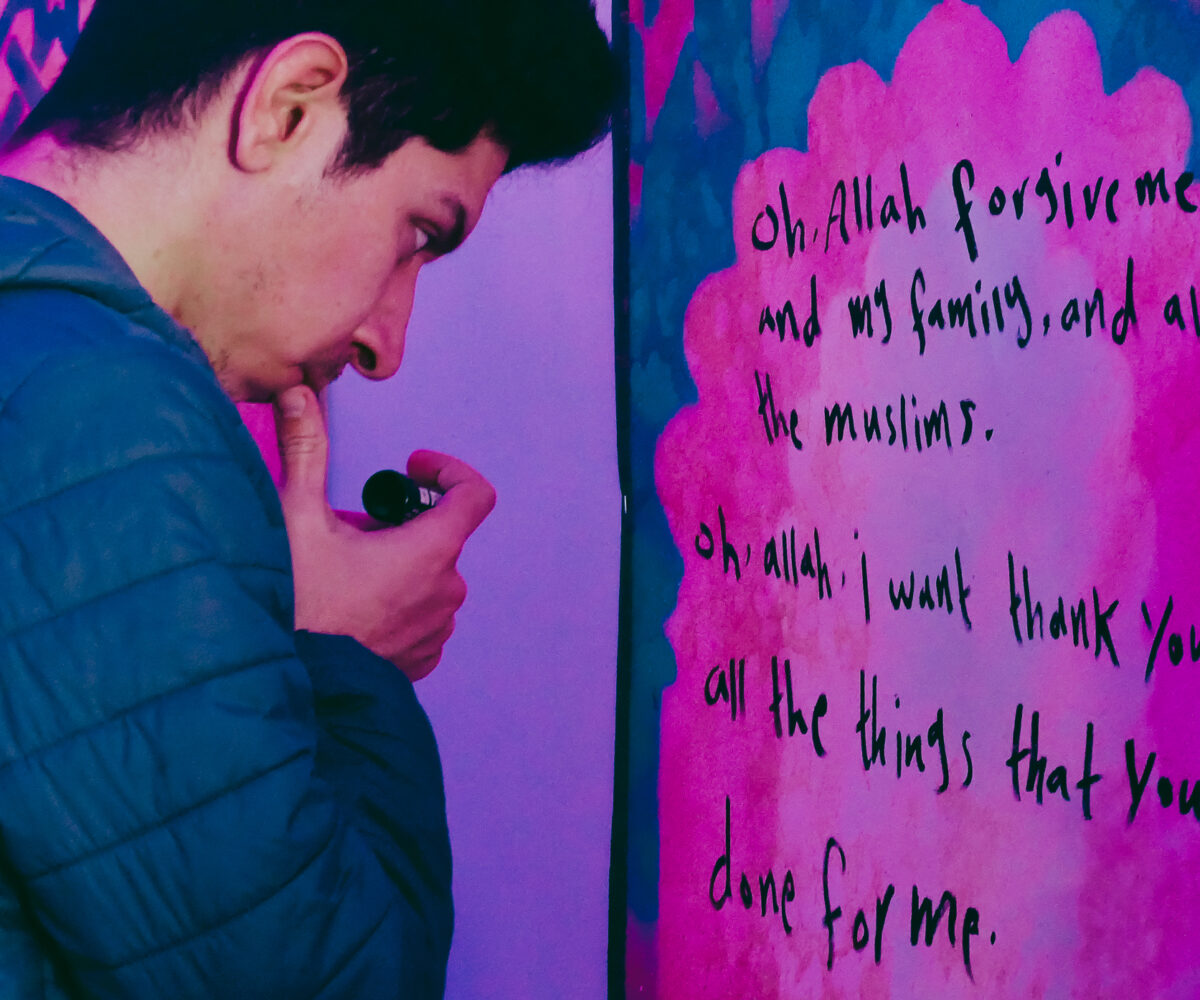 Oh, Allah forgive me
and my family, and al
the muslims.
Oh, allah, i want thank you
all the things that you
done for me.